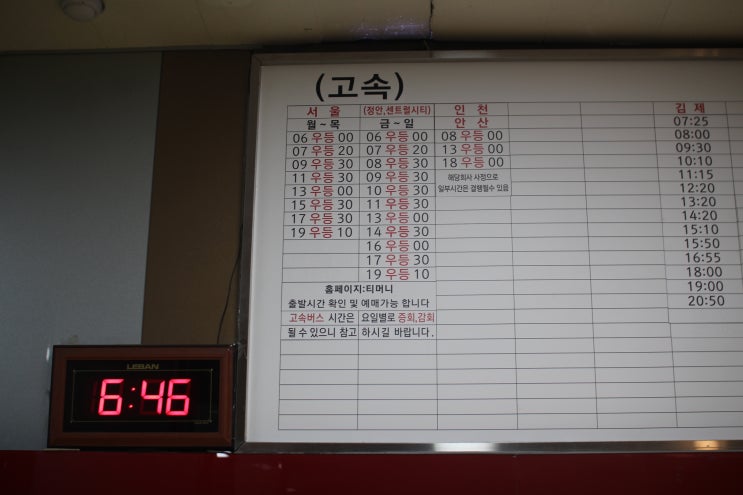 (고속)
서 울 (정안,센트럴시티) 인 천 김 제
월 ~ 목 금 ~ 일 안 산 07:25
06 우등 00 06 우등 00 08 우등 00 08:00
07 우등 20 07 우등 20 13 우등 00 09:30
09 우등 30 08 우등 30 18 우등 00 10:10
11 우등 30 09 우등 30 해당회사 사정으로 11:15
13 우등 00 10 우등 30 일부시간은 결행될수 있음 12:20
15 우등 30 11 우등 30 13:20
17 우등 30 13 우등 00 14:20
19 우등 10 14 우등 30 15:10
16 우등 00 15:50
17 우등 30 16:55
19 우등 10 18:00
홈페이지:티머니 19:00
출발시간 확인 및 예매가능 합니다 20:50
고속버스 시간은 요일별로 증회,감회
될 수 있으니 참고 하시길 바랍니다.
LEBAN
6:46